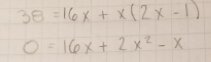 38 = 16x + x(2x - 1)
0 = 16x + 2x² - x